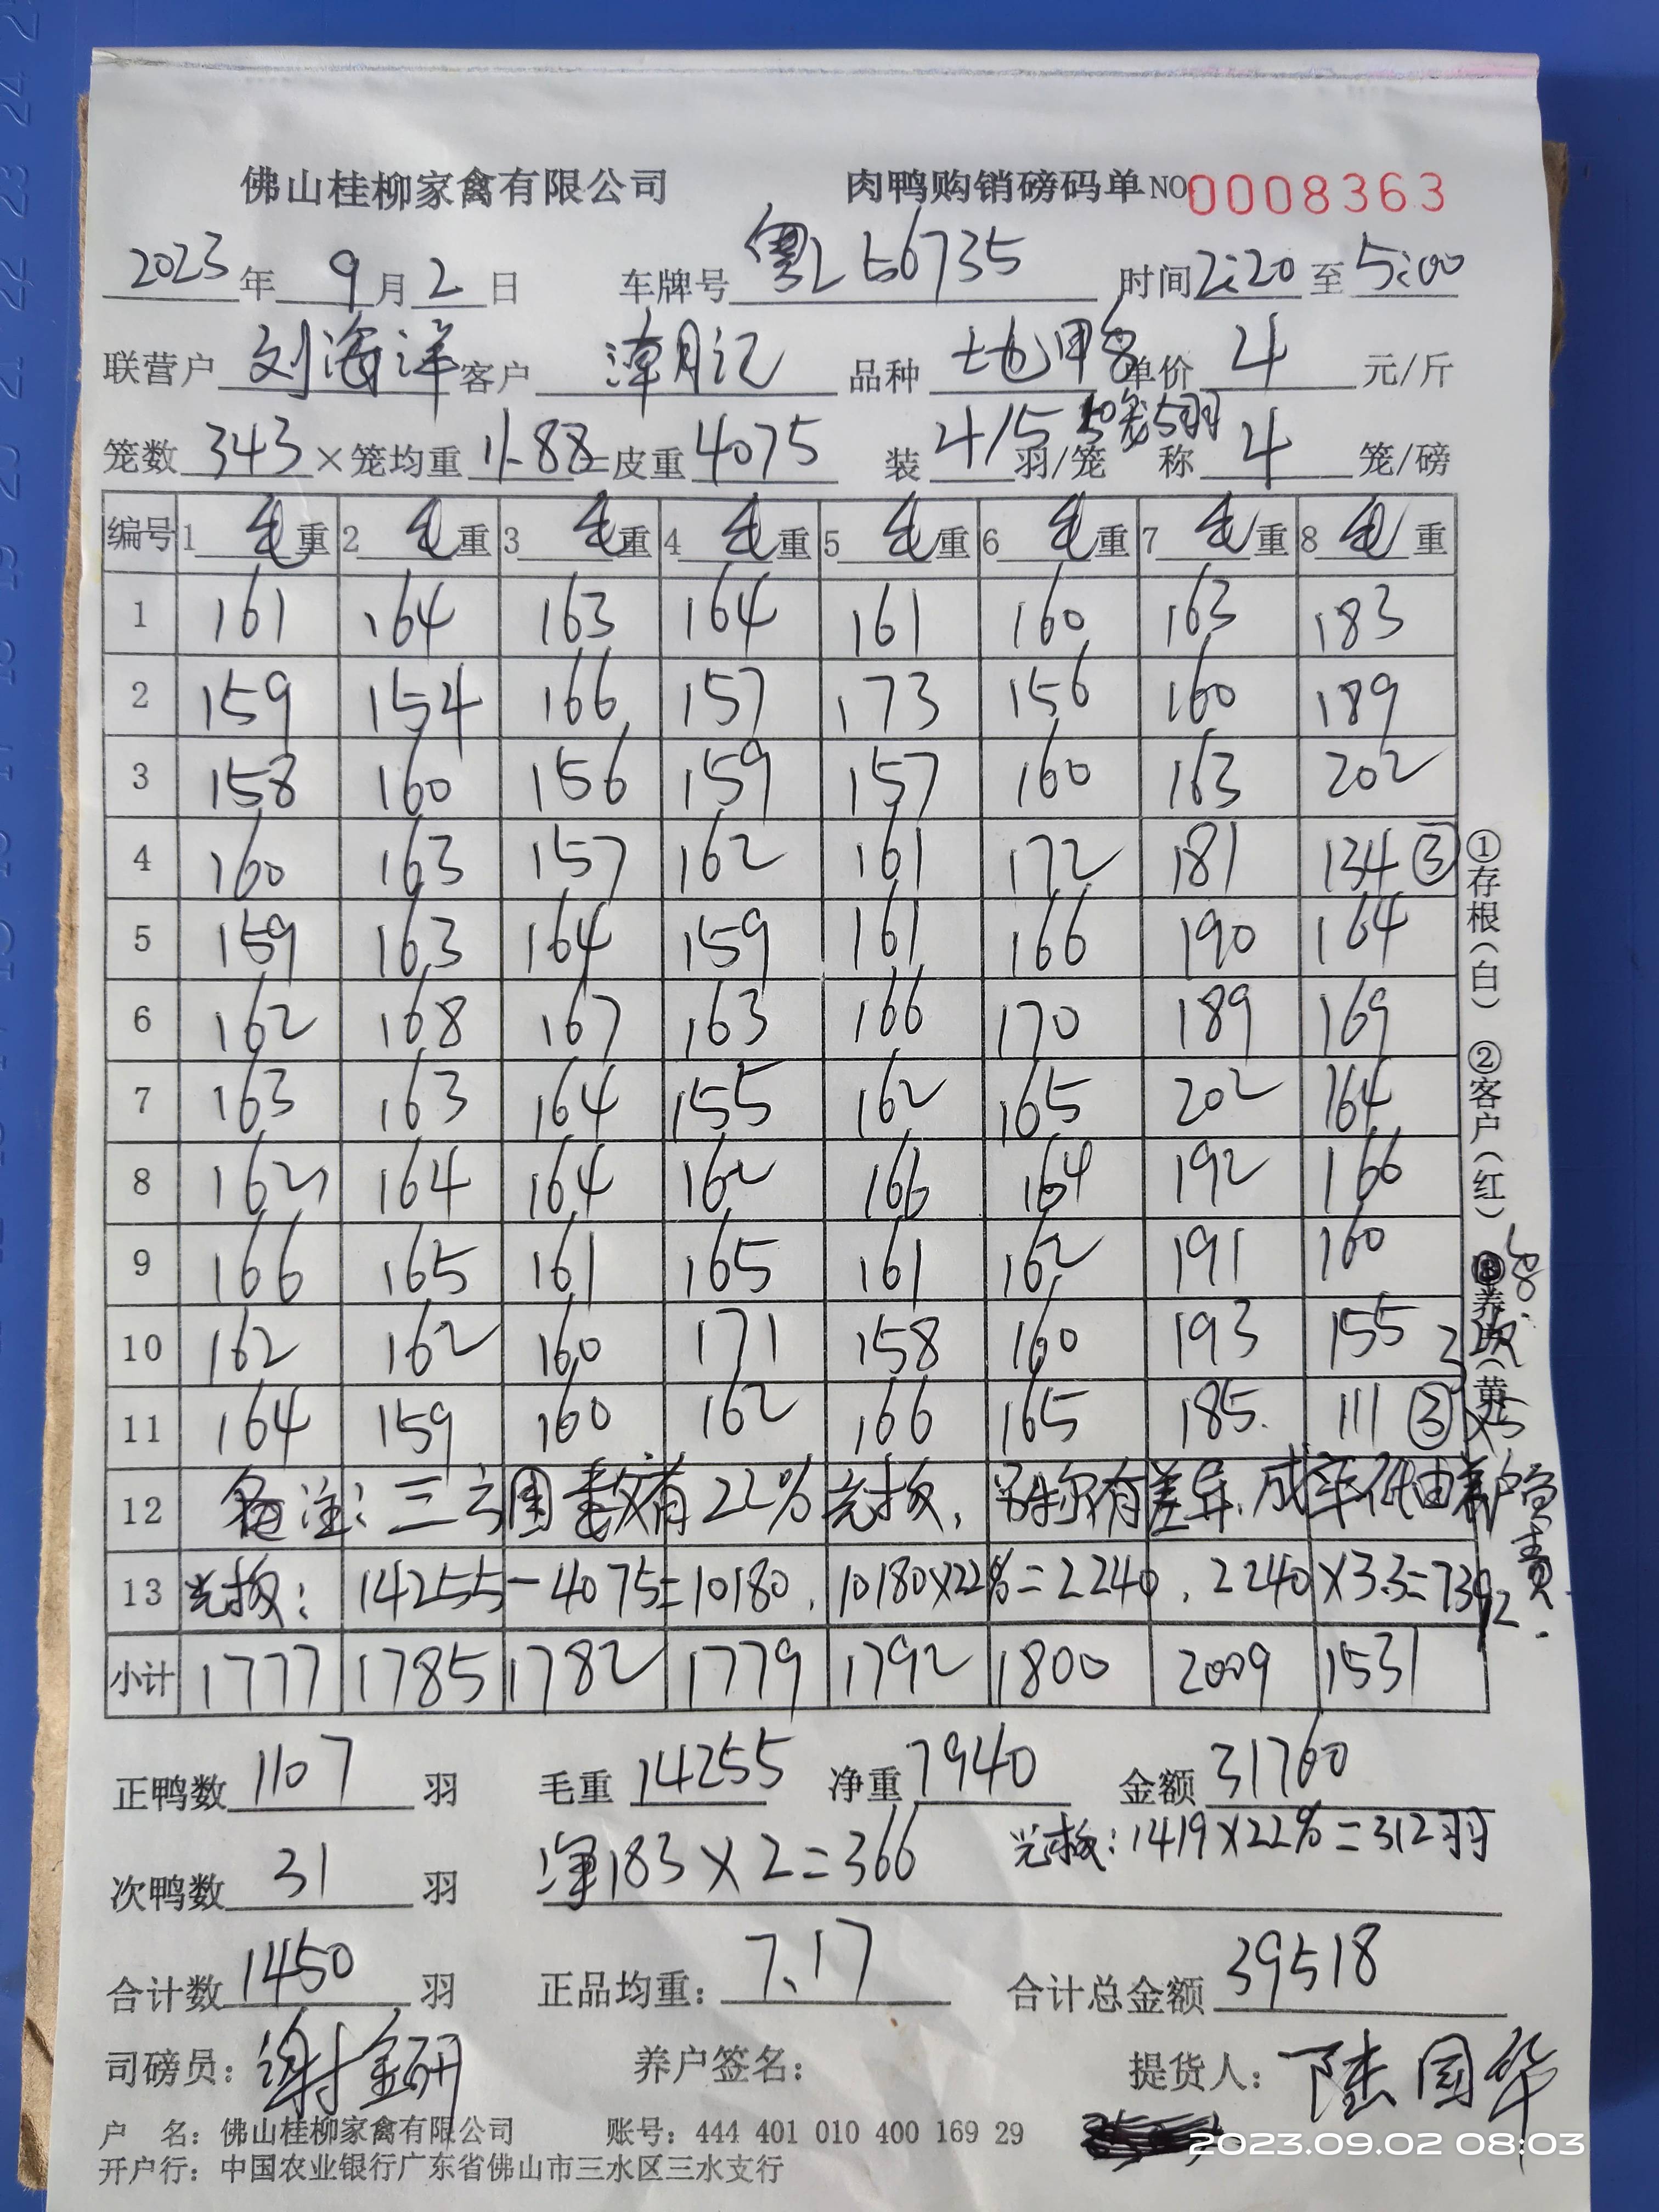 佛山桂柳家禽有限公司 肉鸭购销磅码单 NO 0008363
2023年 9月 2日 车牌号 粤L 56735 时间 2:20 至 5:00
联营户 刘海洋 客户 潭月记 品种 土也甲8 单价 4 元/斤
笼数 343 × 笼均重 11.88 = 皮重 4075 装 4/5 羽/笼 5羽 称 4 笼/磅
编号 1 毛重 2 毛重 3 毛重 4 毛重 5 毛重 6 毛重 7 毛重 8 毛重
1 161 164 163 164 161 160 163 183
2 159 154 166 157 173 156 160 189
3 158 160 156 159 157 160 163 202
4 160 163 157 162 161 172 181 134 ③
5 159 163 164 159 161 166 190 164
6 162 168 167 163 166 170 189 169
7 163 163 164 155 162 165 202 164
8 162 164 164 162 166 164 192 166
9 166 165 161 165 161 162 191 160
10 162 162 160 171 158 160 193 155
11 164 159 160 162 166 165 185. 111 ③ ×5
12 备注: 有22%光板, 有差异.成率低由养户负责.
13 光板: 14255-4075=10180, 10180×22%=2240, 2240×3.3=7392.
小计 1777 1785 1782 1779 1792 1800 2009 1531
①存根(白) ②客户(红) 养 (黄
正鸭数 1107 羽 毛重 14255 净重 7940 金额 31760
光板: 1419×22%=312羽
次鸭数 31 羽 183×2=366
合计数 1450 羽 正品均重: 7.17 合计总金额 39518
司磅员: 谢金研 养户签名: 提货人: 陆国华
户 名: 佛山桂柳家禽有限公司 账号: 444 401 010 400 169 29
开户行: 中国农业银行广东省佛山市三水区三水支行
2023.09.02 08:03